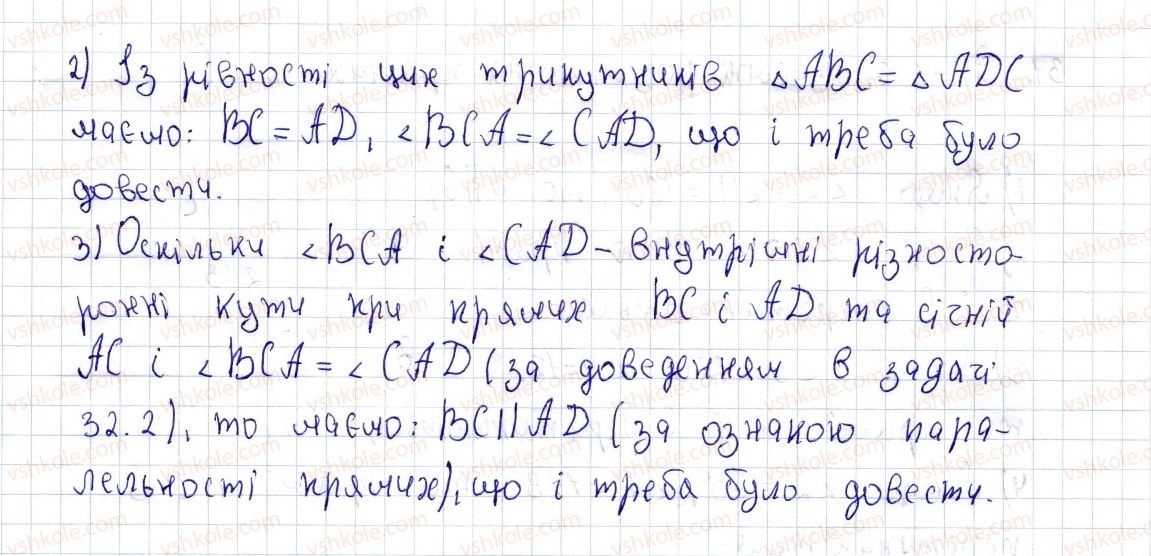 2) Із рівності цих трикутників △ABC = △ADC
маємо: BC = AD, ∠BCA = ∠CAD, що і треба було
довести.
3) Оскільки ∠BCA і ∠CAD – внутрішні різносто-
ронні кути при прямих BC і AD та січній
AC і ∠BCA = ∠CAD (за доведенням в задачі
32.2), то маємо: BC || AD (за ознакою пара-
лельності прямих), що і треба було довести.